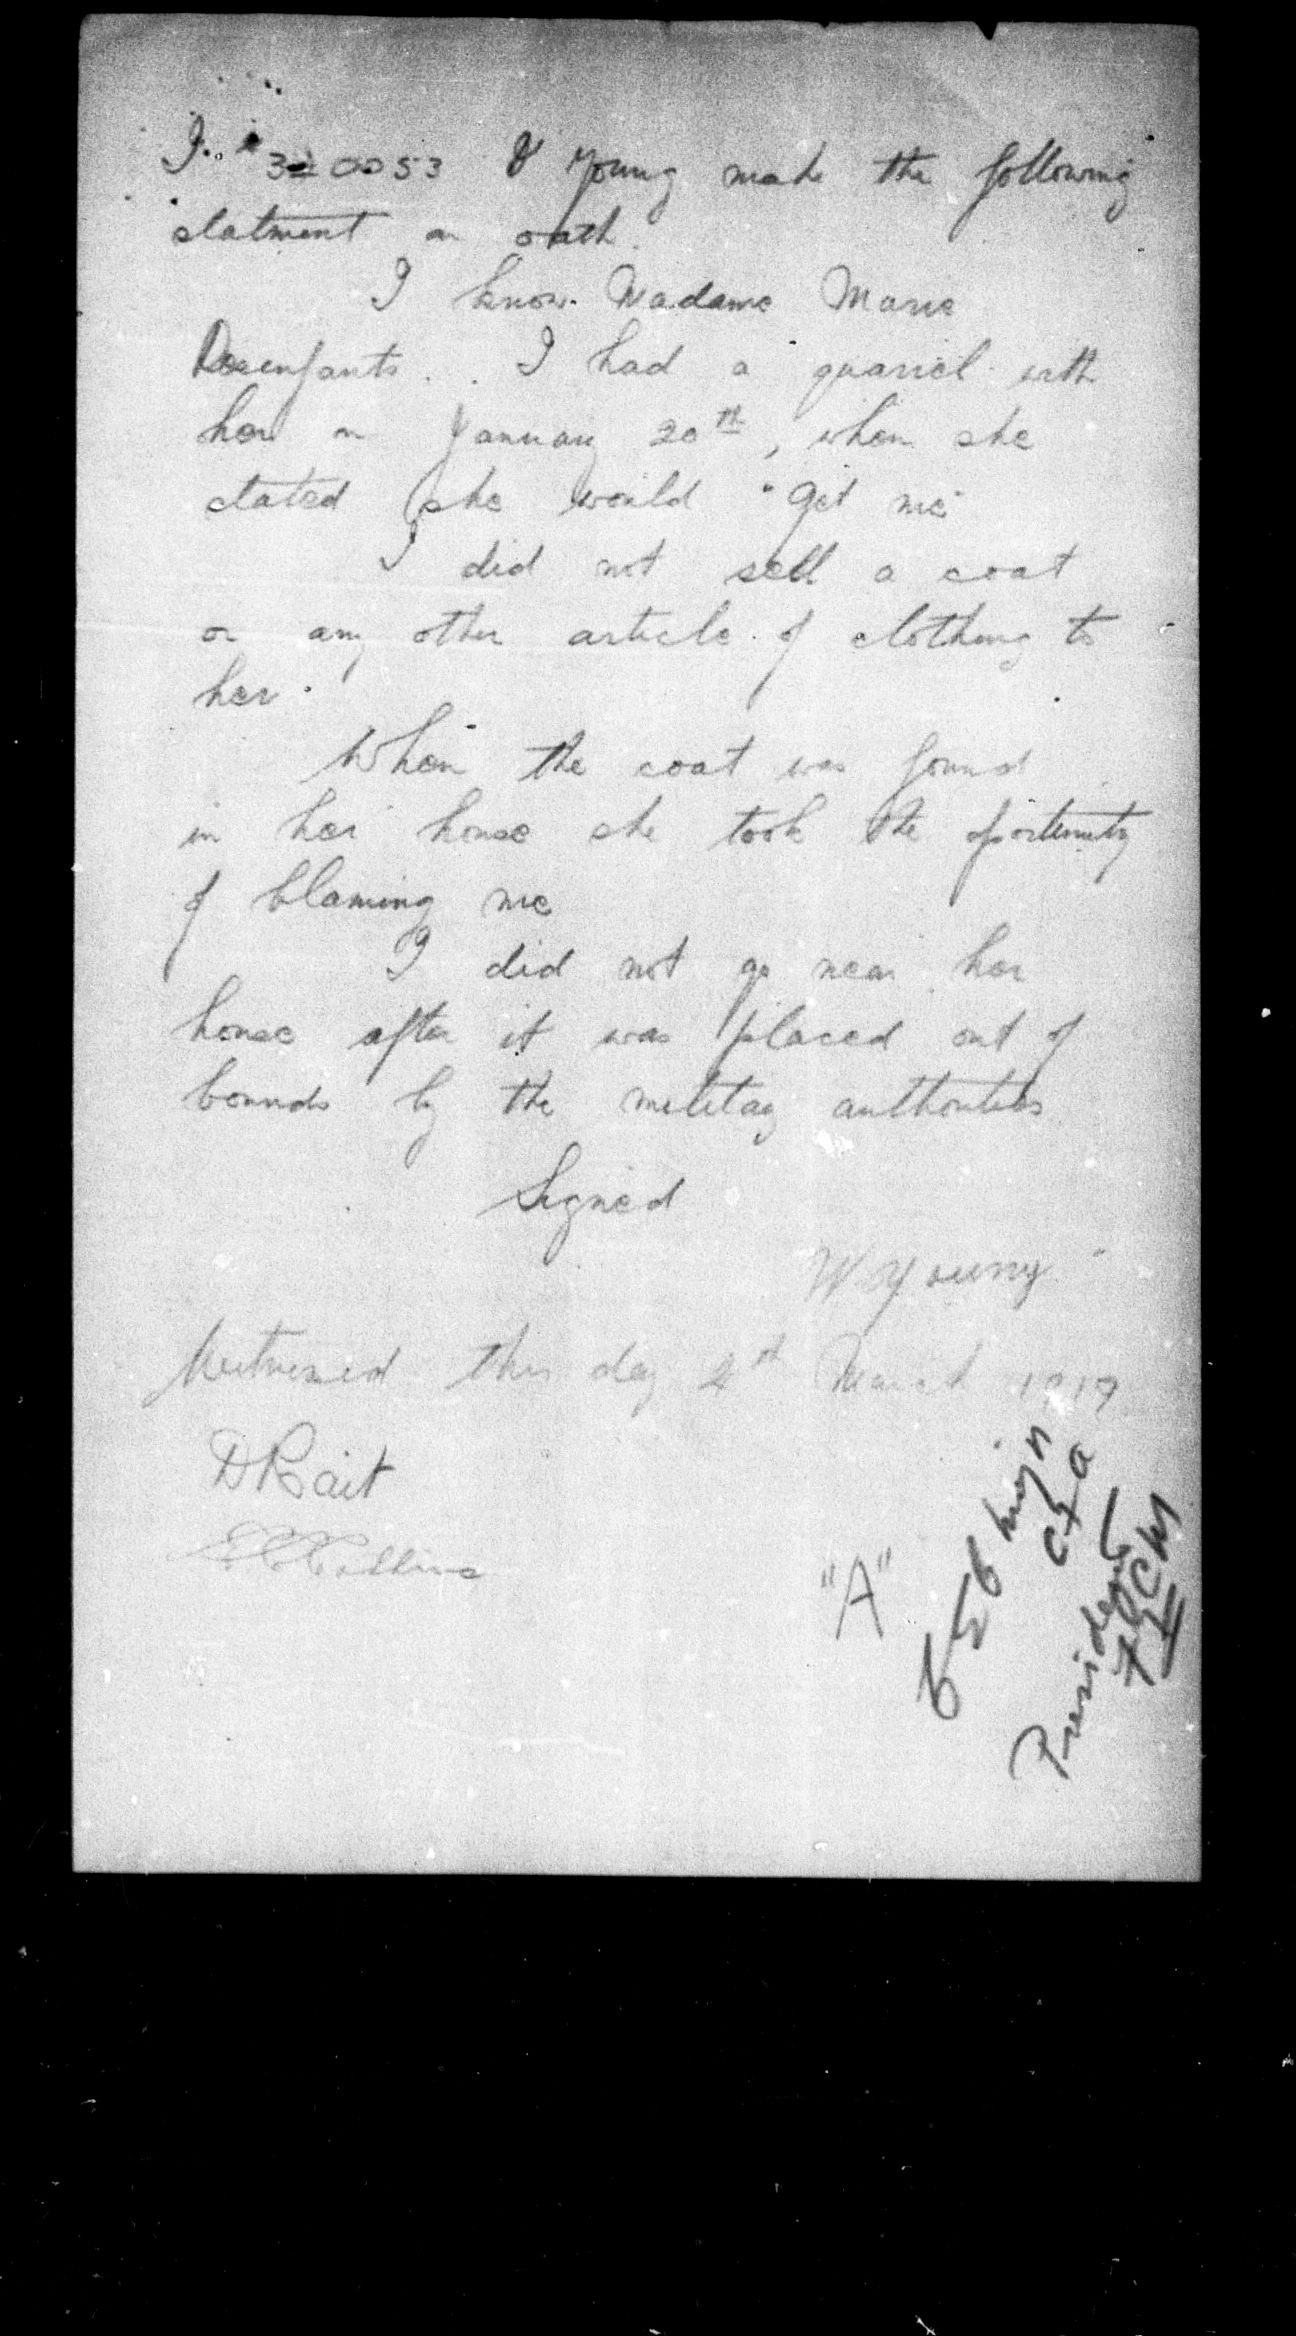 I. 320053 Young make the following
statment on oath.
I know Madame Marie
Desenfants. I had a quarrel with
her on January 20th, when she
stated she would "get me"
I did not sell a coat
or any other article of clothing to
her.
When the coat was found
in her house she took the oportunity
of blaming me
I did not go near her
house after it was placed out of
bounds by the military authorities
Signed
W Young
Witnessed this day 4th March 1919
D Rait
Collins
"A"
Major
CFA
President
FGCM